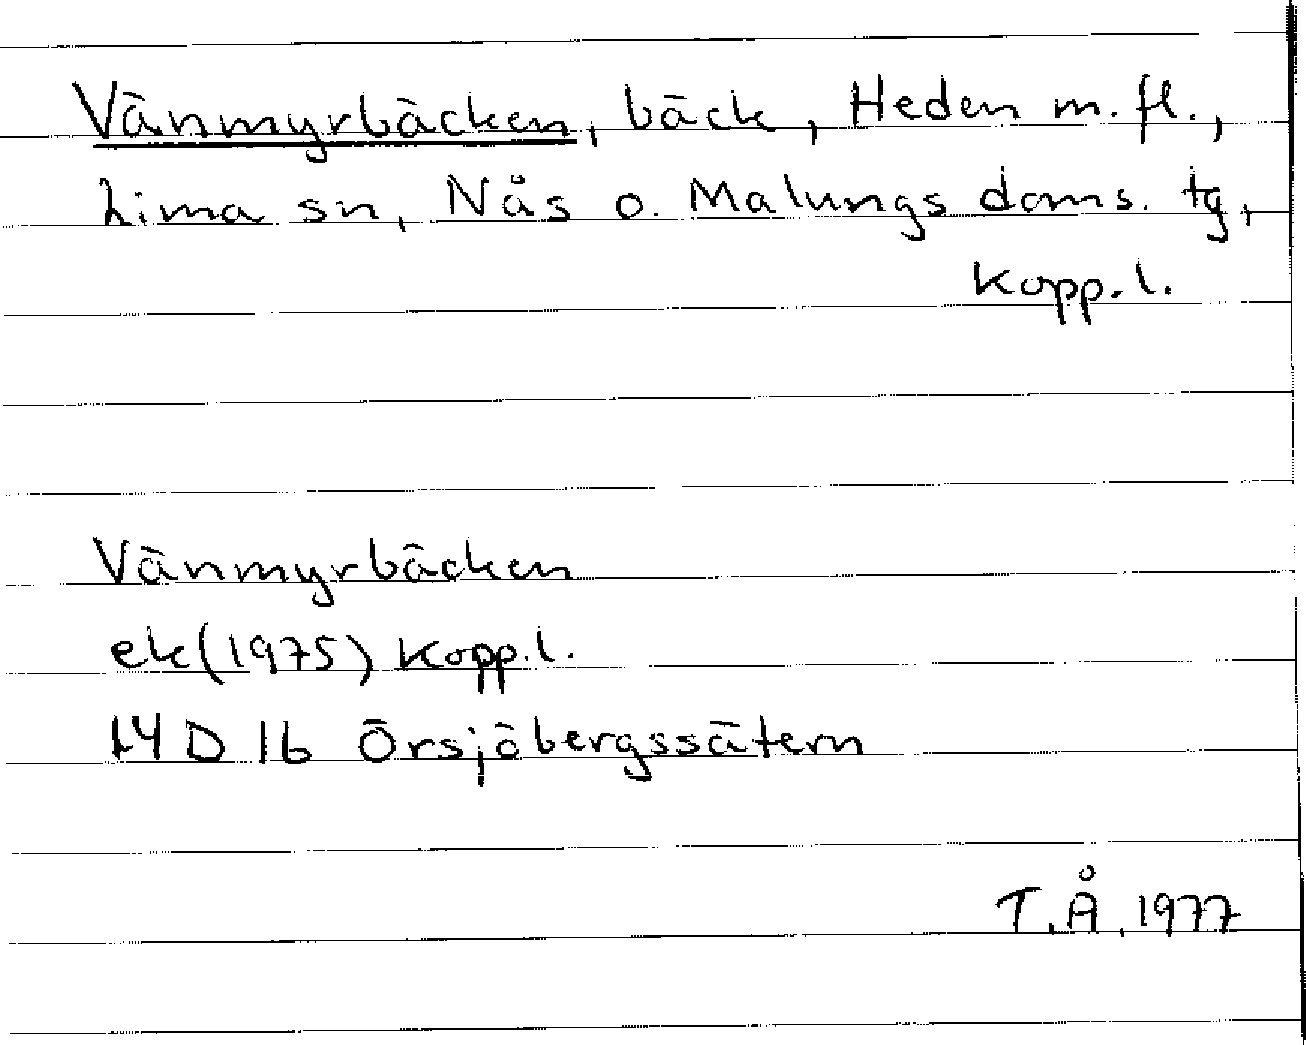 Vänmyrbäcken, bäck, Heden m. fl.,
Lima sn, Nås o. Malungs doms. tg,
Kopp. l.
Vänmyrbäcken
ek (1975) Kopp. l.
14 D 1b Örsjöbergssätern
T.Å. 1977